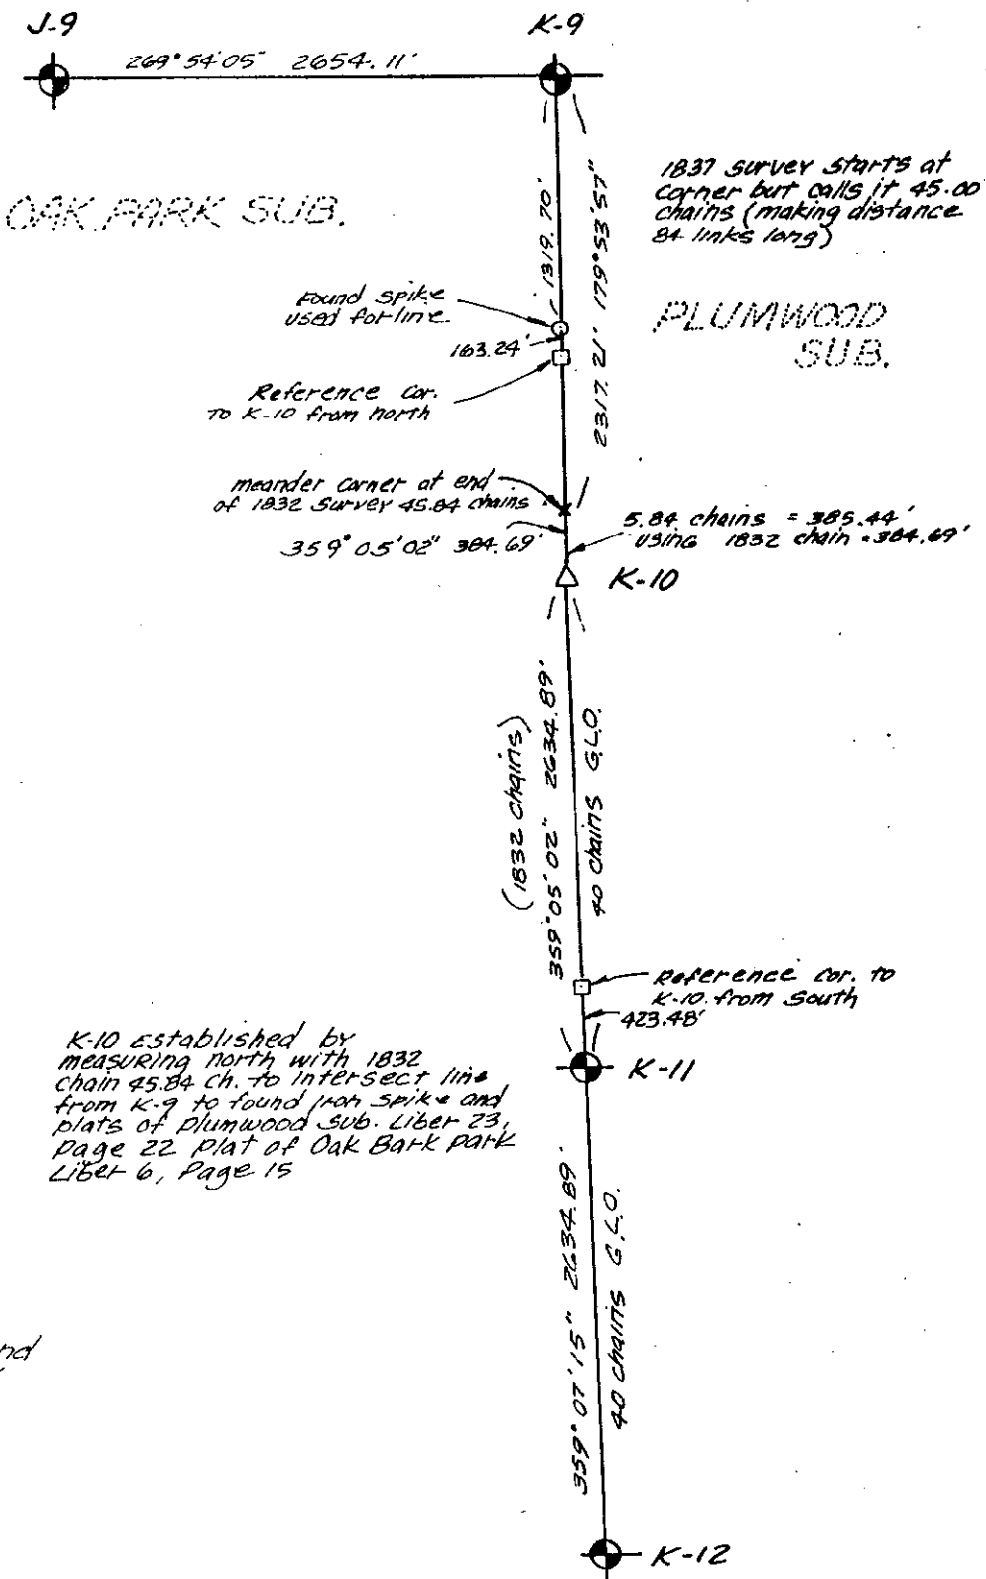 J-9
K-9
269°54'05" 2654.11'
1837 survey starts at
corner but calls it 45.00
chains (making distance
84 links long)
OAK PARK SUB.
1319.70'
2317.21' 179°53'57"
Found spike
used for line.
163.24'
PLUMWOOD
SUB.
Reference Cor.
TO K-10 from north
meander corner at end
of 1832 Survey 45.84 chains
359°05'02" 384.69'
5.84 chains = 385.44'
USING 1832 chain = 384.69'
K-10
(1832 chains)
359°05'02" 2634.89'
40 chains G.L.O.
Reference Cor. to
K-10 from South
423.48'
K-11
K-10 established by
measuring north with 1832
chain 45.84 ch. to intersect line
from K-9 to found iron spike and
plats of Plumwood Sub. Liber 23,
Page 22 Plat of Oak Bark Park
Liber 6, Page 15
359°07'15" 2634.89'
40 chains G.L.O.
nd
K-12